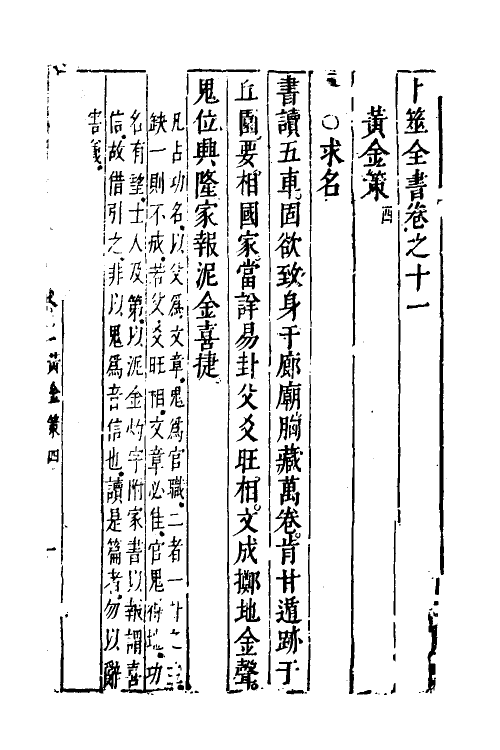 卜筮全書卷之十一
黃金策 四
○求名
書讀五車固欲致身于廊廟胸藏萬卷肯甘遁跡于
丘園要相國家當詳易卦父爻旺相文成擲地金聲
鬼位興隆家報泥金喜捷
凡占功名以父爲文章鬼爲官職二者一卦之主
缺一則不成若父爻旺相文章必佳官鬼得地功
名有望士人及第以泥金灼字附家書以報謂喜
信故借引之非以鬼爲音信也讀是篇者勿以辭
害義
黃金策四
一